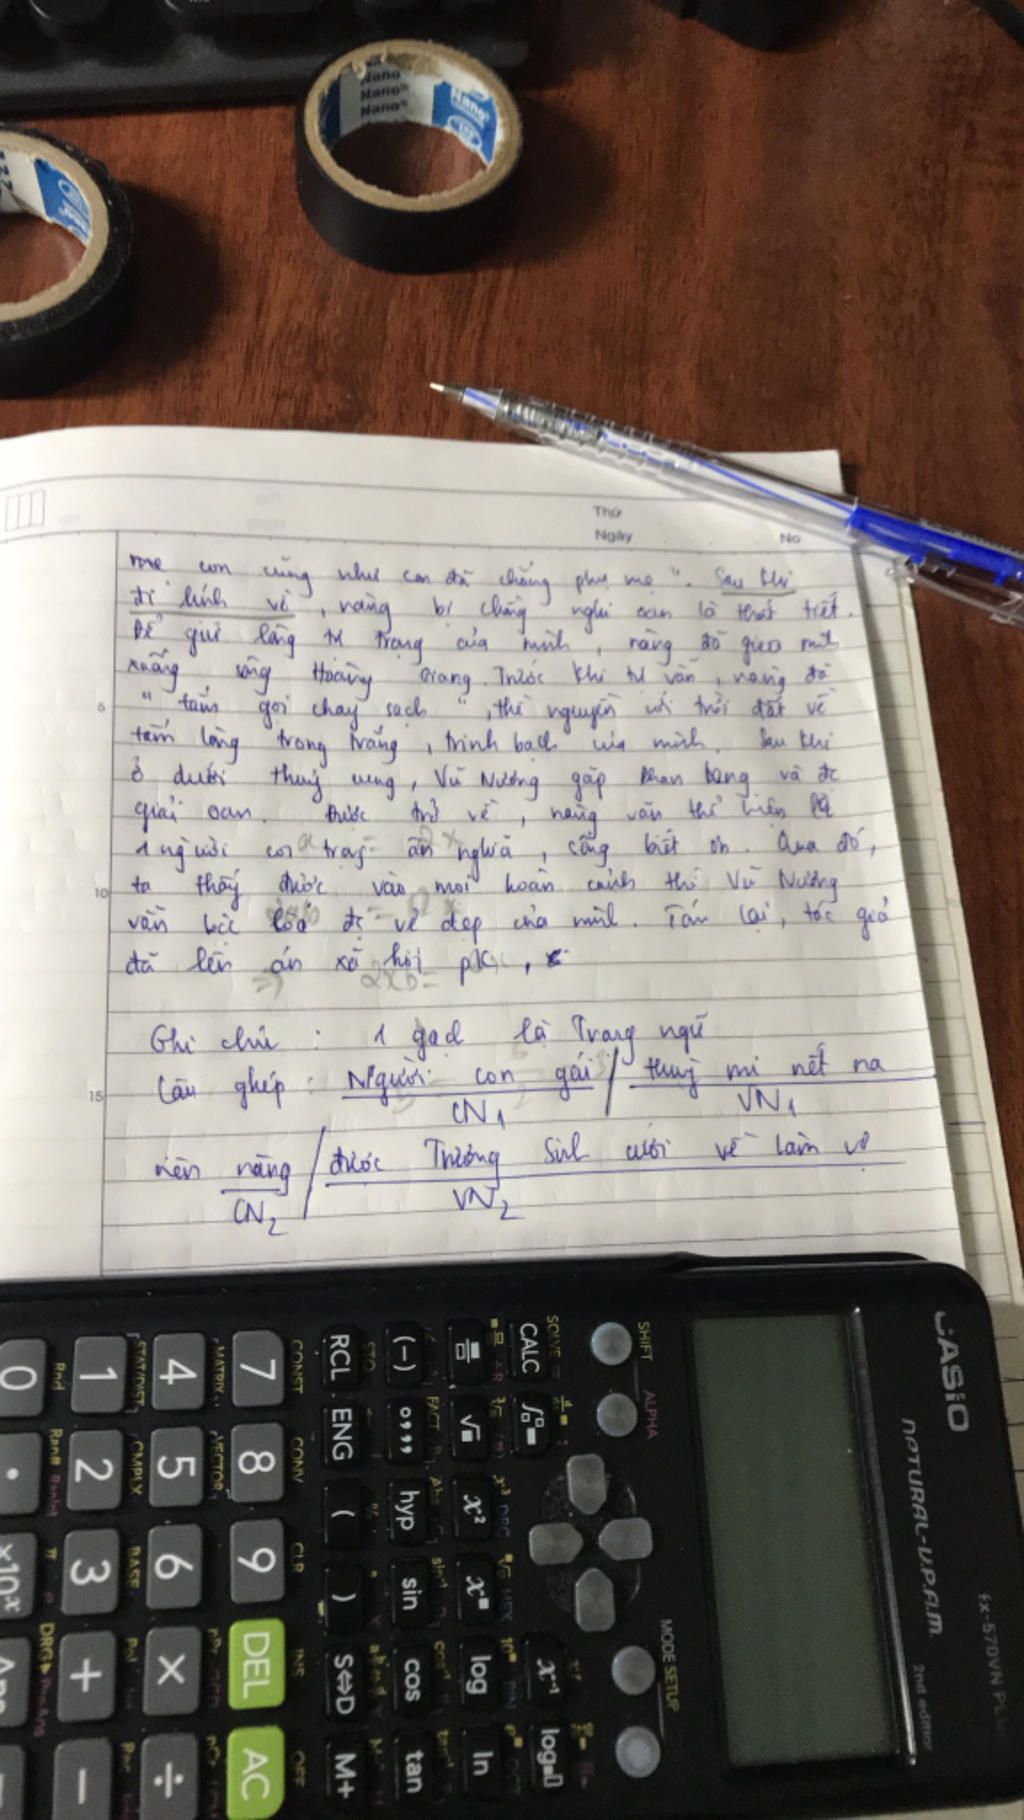 Nano
Nano
Nano
Nano
Thứ
Ngày
No
mẹ con cũng như con đã chẳng phụ mẹ". Sau khi
đi lính về, nàng bị chồng nghi oan là thất tiết.
Để giữ lòng tự trọng của mình, nàng đã gieo mình
xuống sông Hoàng Giang. Trước khi tự vẫn, nàng đã
5
"tắm gội chay sạch", thề nguyền với trời đất về
tấm lòng trong trắng, trinh bạch của mình. Sau khi
ở dưới thuỷ cung, Vũ Nương gặp Phan Lang và đc
giải oan. Được trở về, nàng vẫn thể hiện là
1 người coi trọng ân nghĩa, sống biết ơn. Qua đó,
10
ta thấy được vào mọi hoàn cảnh thì Vũ Nương
vẫn bộc lộ đc vẻ đẹp của mình. Tóm lại, tác giả
đã lên án xã hội pk,
Ghi chú: 1 gạch là Trạng ngữ
15
Câu ghép: Người con gái / thuỳ mị nết na
CN1 VN1
nên nàng / được Trương Sinh cưới về làm vợ
CN2 VN2
CASIO
NATURAL-V.P.A.M.
fx-570VN PL
2nd edition
SHIFT
ALPHA
MODE SETUP
SOLVE =
CALC
x⁻¹
log
√
x²
x
log
ln
(−)
hyp
sin
cos
tan
STO
RCL
ENG
(
)
S⇔D
M+
CONST
CONV
CLR
INS
OFF
7
8
9
DEL
AC
MATRIX
VECTOR
4
5
6
×
÷
STAT/DIST
CMPLX
BASE
1
2
3
+
−
Rnd
Ran#
DRG▸
0
•
×10x